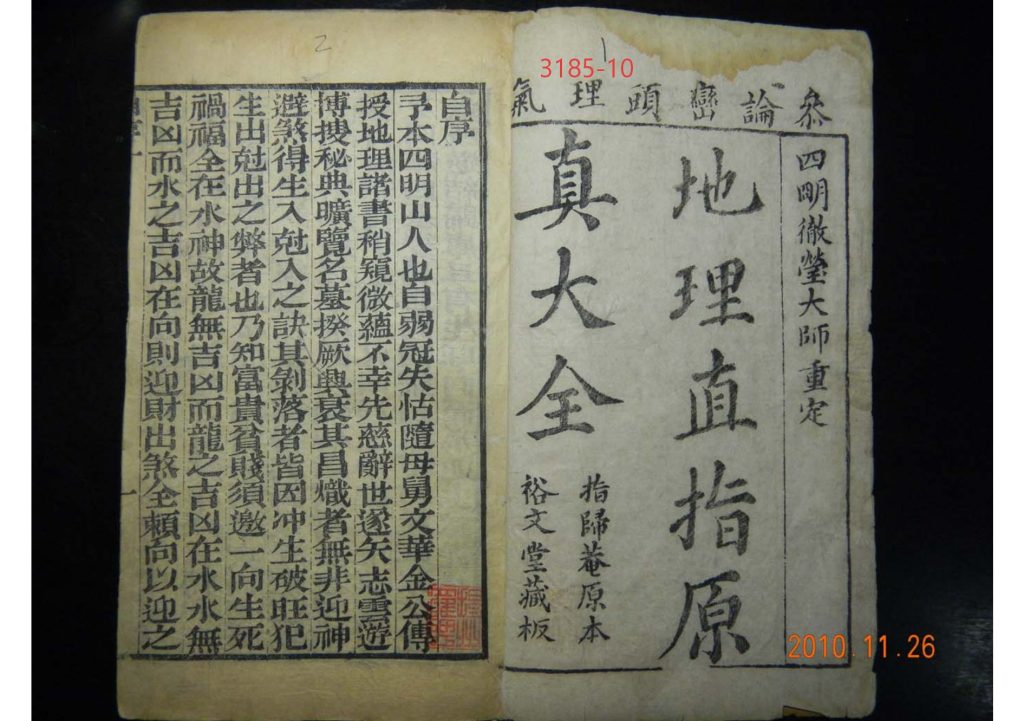 3185-10
1
2
參論巒頭理氣
四明徹瑩大師重定
地理直指原
真大全
指歸菴原本
裕文堂藏板
自序
予本四明山人也自弱冠失怙隨母舅文華金公傳
授地理諸書稍窺微蘊不幸先慈辭世遂矢志雲遊
博搜秘典曠覽名墓揆厥興衰其昌熾者無非迎神
避煞得生入尅入之訣其剝落者皆因冲生破旺犯
生出尅出之弊者也乃知富貴貧賤須邀一向生死
禍福全在水神故龍無吉凶而龍之吉凶在水水無
吉凶而水之吉凶在向則迎財出煞全賴向以迎之
自序 一
2010.11.26